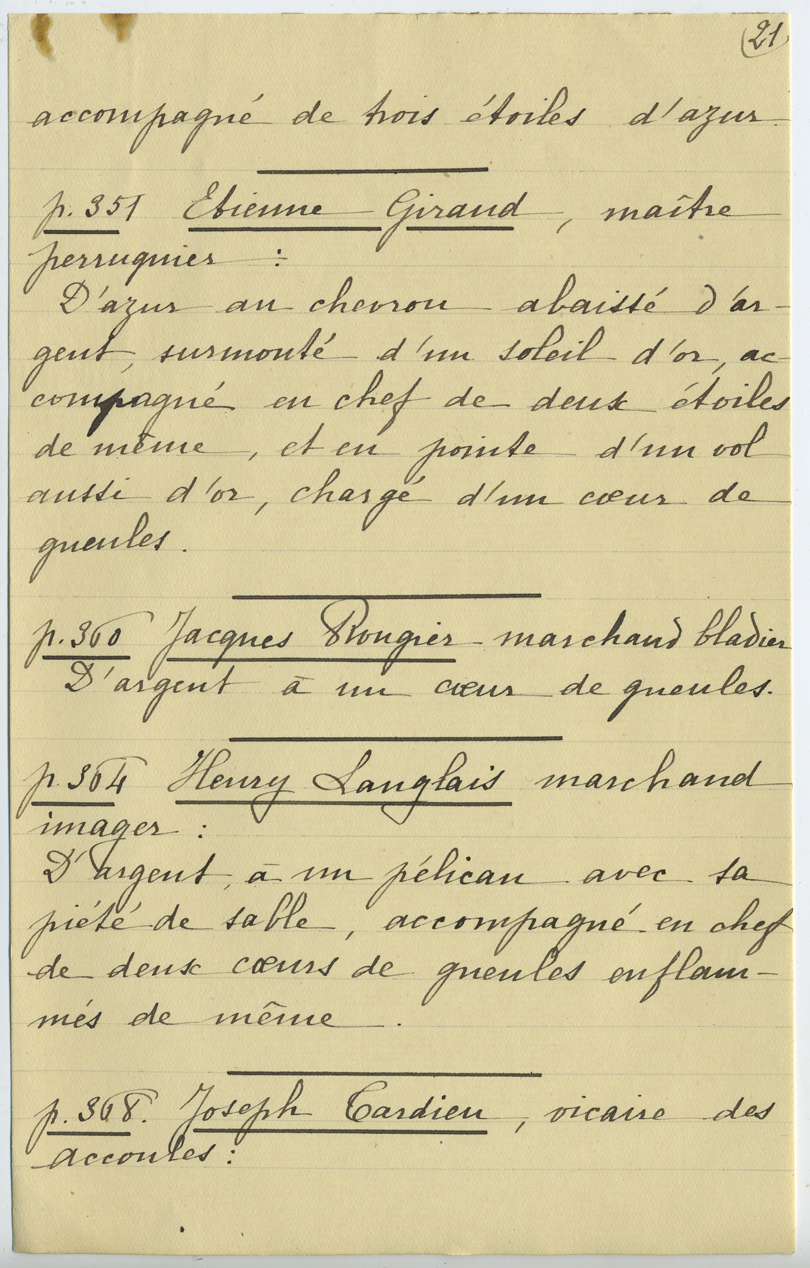 21
accompagné de trois étoiles d'azur
p. 351 Etienne Giraud, maître
perruquier :
D'azur au chevron abaissé d'ar-
gent, surmonté d'un soleil d'or, ac-
compagné en chef de deux étoiles
de même, et en pointe d'un vol
aussi d'or, chargé d'un cœur de
gueules.
p. 360 Jacques Rougier marchand bladier
D'argent à un cœur de gueules.
p. 364 Henry Langlais marchand
imager :
D'argent, à un pélican avec sa
piété de sable, accompagné en chef
de deux cœurs de gueules enflam-
més de même.
p. 368. Joseph Tardieu, vicaire des
accoules :